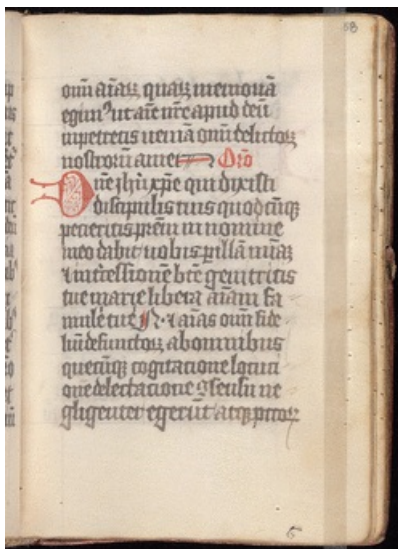 58
om̄ aīaꝝ quaꝝ memoriā
egimꝰ ut aīe nr̄e apud deū
inpetretis ueniā om̄ delictoꝝ
nostrorū amen Orō
Dn̄e ih̄u xp̄e qui dixisti
discipulis tuis quodcūqꝫ
pecieritis pr̄em in nomine
meo dabit uobis ꝑ illā
⁊ int̄cessionē btē genitricis
tue marie libera aīam fa
mule tue N ⁊ aīas om̄ fide
liū defunctoꝝ ab omnibus
quecūqꝫ cogitacione locuti
one delectacione ꝯsensu ne
gligenter egerūt atqꝫ